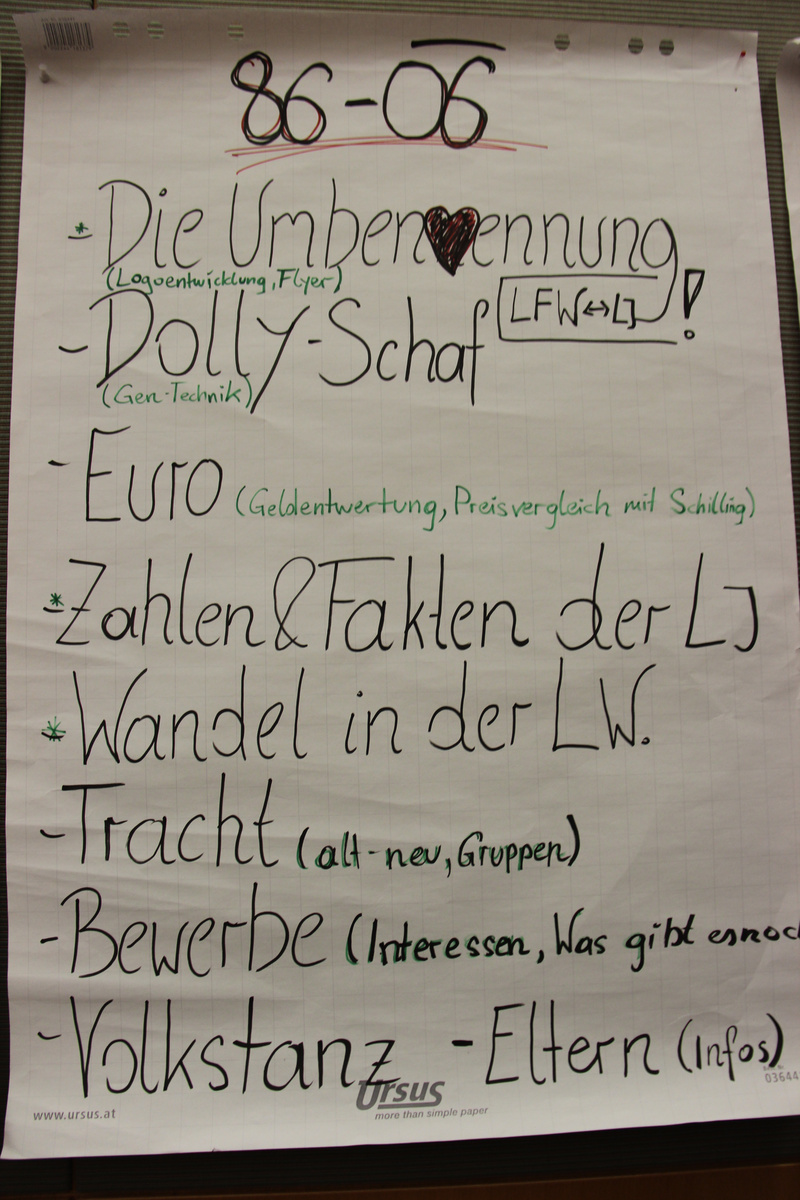 86-06
* - Die Umbenennung
(Logoentwicklung, Flyer)
LFW↔LJ !
- Dolly-Schaf
(Gen-Technik)
- Euro (Geldentwertung, Preisvergleich mit Schilling)
* - Zahlen & Fakten der LJ
* - Wandel in der LW.
- Tracht (alt-neu, Gruppen)
- Bewerbe (Interessen, Was gibt es noch
- Volkstanz - Eltern (Infos)
Ursus
more than simple paper
www.ursus.at
03644